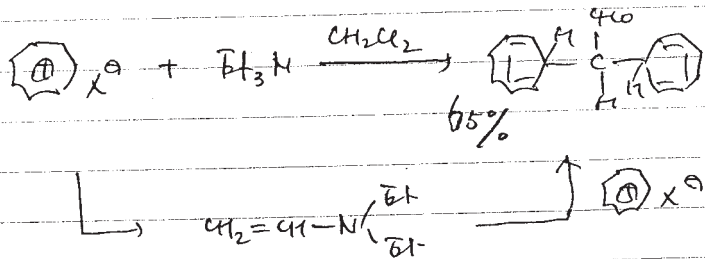 CHO
⊕ X⊖ + Et3N CH2Cl2 H C H
H
65%
CH2=CH-N Et Et ⊕ X⊖